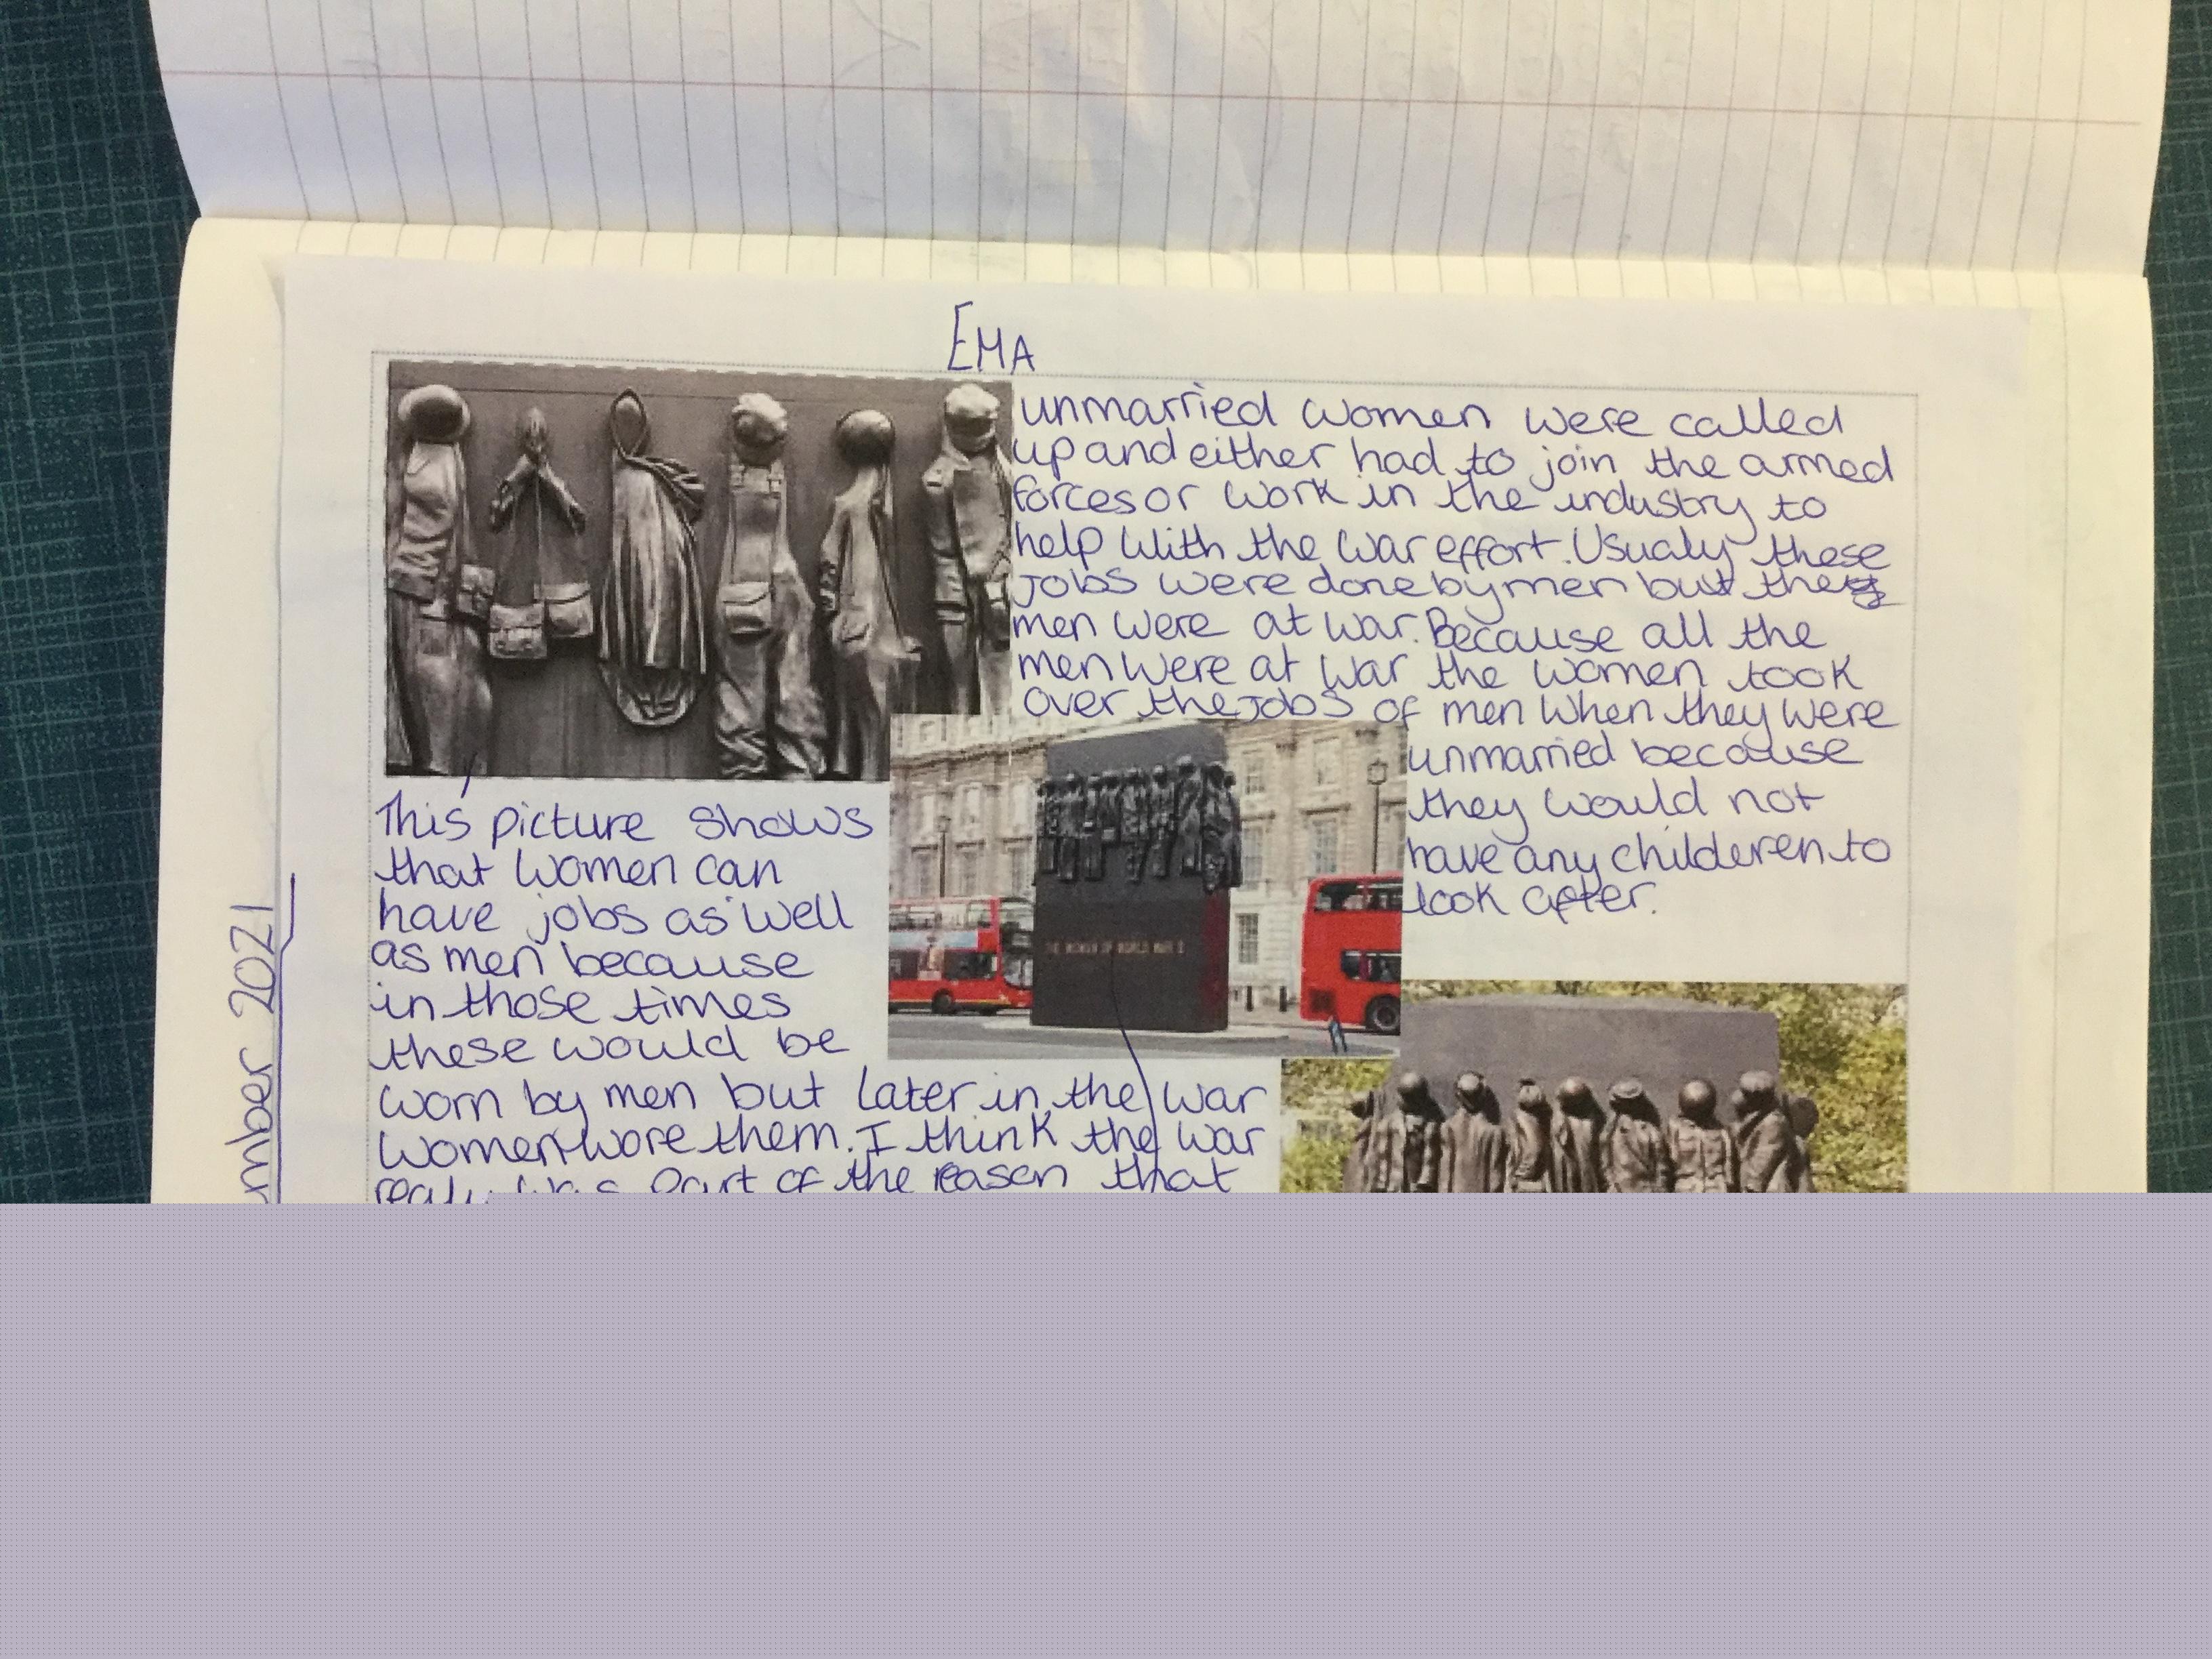 EMA
unmarried women were called
up and either had to join the armed
forces or work in the industry to
help with the war effort. Usualy these
jobs were done by men but the
men were at war. Because all the
men were at war the women took
over the jobs of men when they were
unmarried because
they would not
have any childeren to
look after.
This picture shows
that women can
have jobs as well
as men because
in those times
these would be
worn by men but later in the war
women wore them. I think the war
realy was part of the reason that
THE WOMEN OF WORLD WAR II
2021